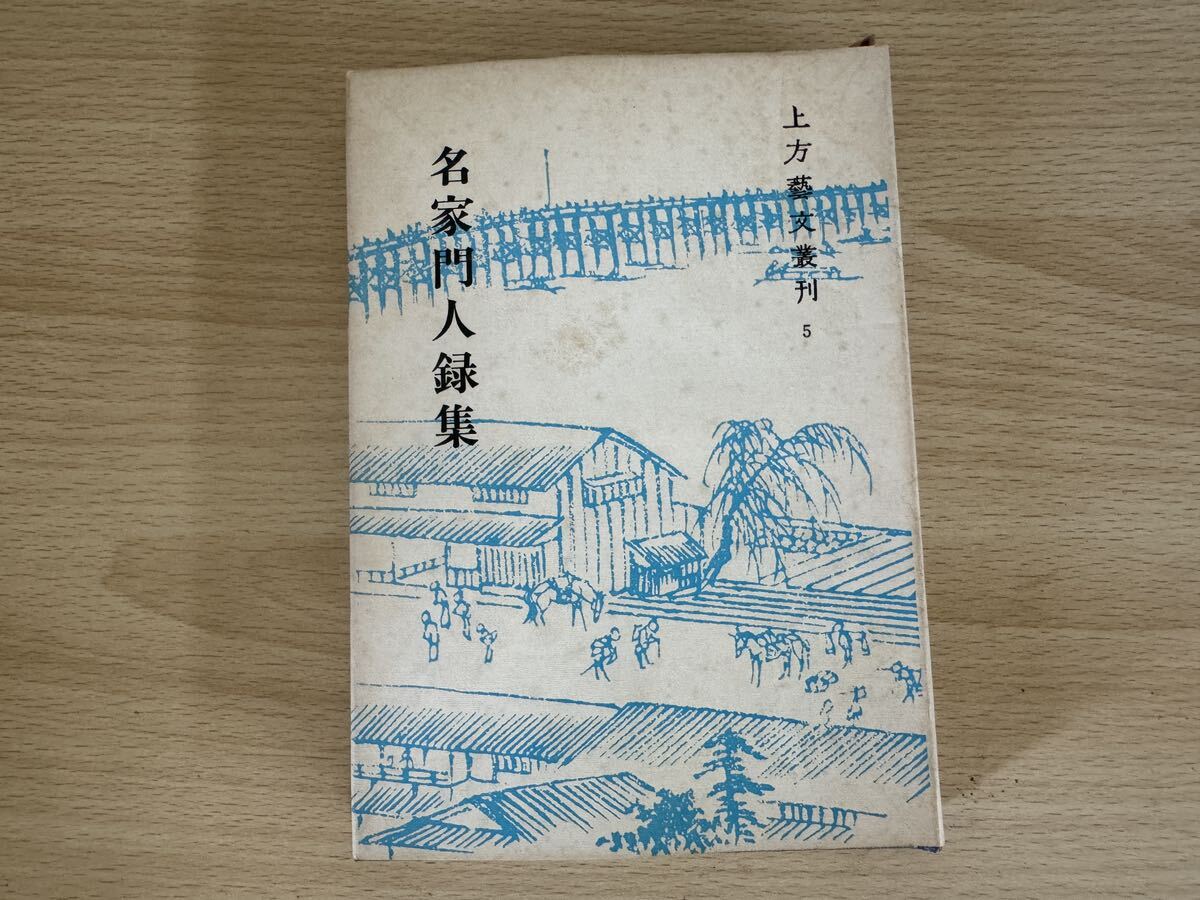 上方藝文叢刊 5
名家門人録集